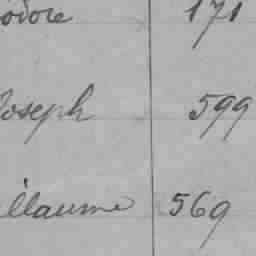 odore 171
Joseph 599
illaume 569